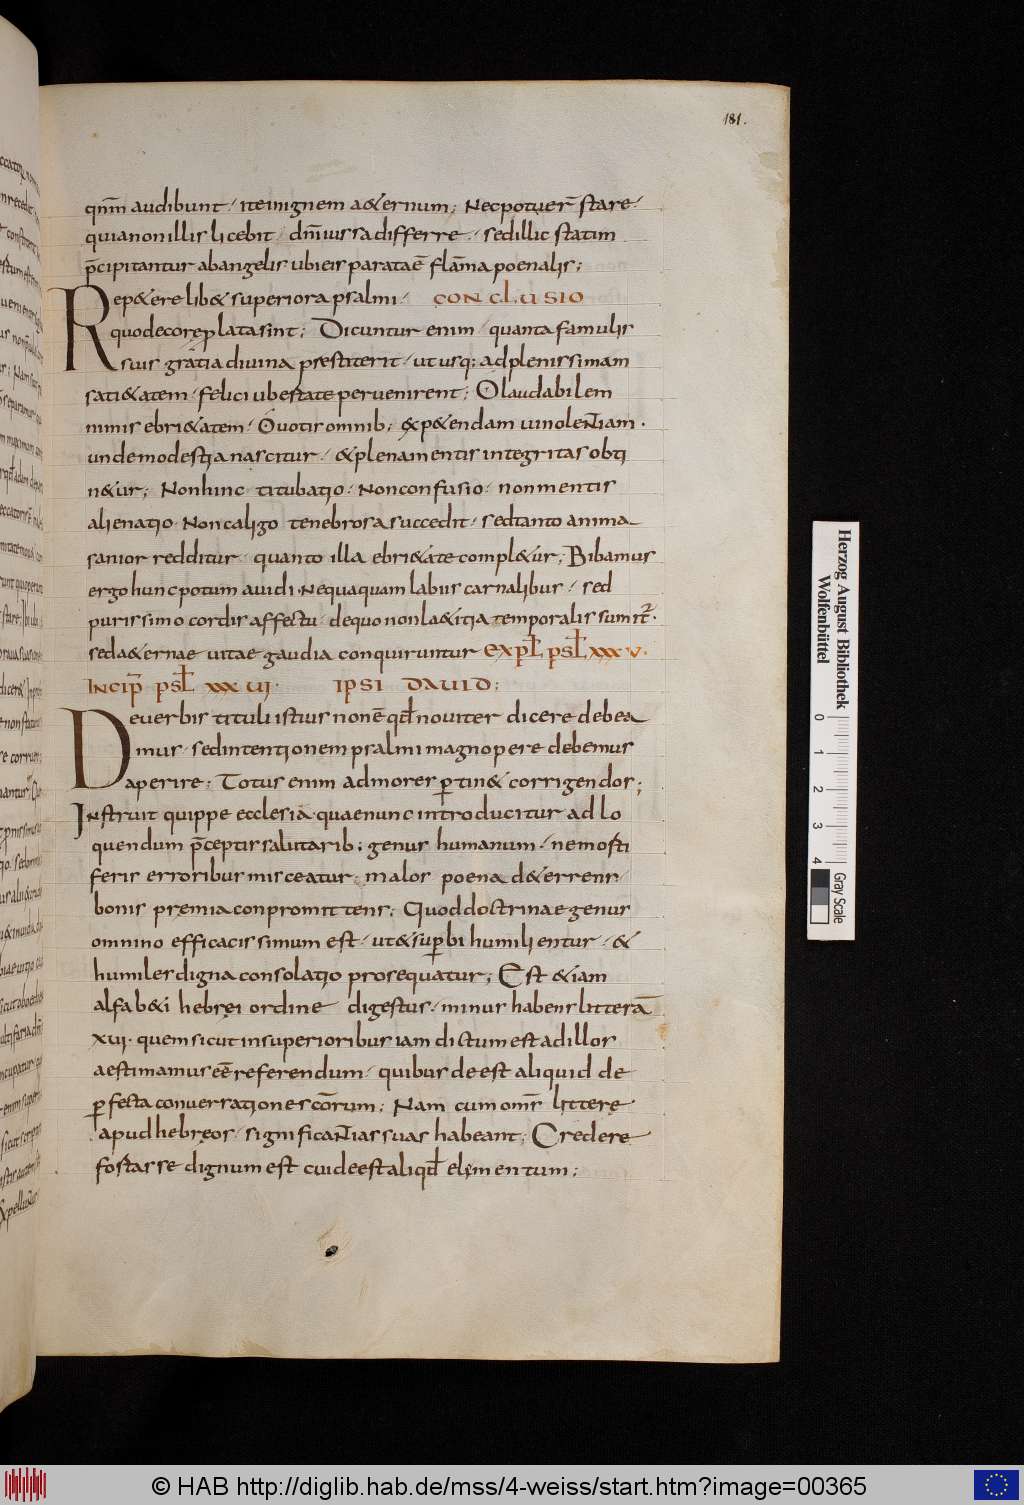 181.
qnm̄ audibunt· ite in ignem a&ernum; Nec potuer̄ stare·
quia non illis licebit· dn̄i iussa differre· sed illic statim
p̄cipitantur ab angelis ubi eis parata ē flām̄a poenalis;
Rep&ere lib& superiora psalmi· CONCLUSIO
quo decore p̱lata sint; Dicuntur enim· quanta famulis
suis gratia divina prestiterit· ut usq; ad plenissimam
sati&atem· felici ubertate pervenirent; O laudabilem
nimis ebri&atem· O votis omnib; exp&endam vinolentiam·
unde modestia nascitur· & plena mentis integritas obti
n&ur; Non hinc titubatio· Non confusio· non mentis
alienatio· Non caligo tenebrosa succedit· sed tanto anima
sanior redditur· quanto illa ebri&ate compl&ur; Bibamus
ergo hunc potum avidi· Nequaquam labiis carnalibus· sed
purissimo cordis affectu· de quo non la&itia temporalis sumit̄·
sed a&ernae vitae gaudia conquiruntur EXPL̄ PSL̄ XXXV·
INCIP̄ PSL̄ XXXVI· IPSI DAVID:
De verbis tituli istius non ē qd̄ noviter dicere debea
mus· sed intentionem psalmi magnopere debemus
aperire; Totus enim ad mores p̱tin& corrigendos;
Instruit quippe ecclesia· quae nunc introducitur ad lo
quendum p̄ceptis salutarib; genus humanum· ne mosti
feris erroribus misceatur; malos poena d&errens·
bonis premia conpromittens; Quod doctrinae genus
omnino efficacissimum est· ut & sup̱bi humilientur· &
humiles digna consolatio prosequatur; Est &iam
alfab&i hebrei ordine digestus· minus habens litterā
xvi· quem sicut in superioribus iam dictum est ad illos
aestimamus eē referendum· quibus deest aliquid de
p̱fecta conversatione scōrum; Nam cum om̄s littere
apud hebreos· significantias suas habeant; Credere
fostasse dignum est cui deest aliqd̄ elementum;
Herzog August Bibliothek
Wolfenbüttel
0 1 2 3 4
Gray Scale
© HAB http://diglib.hab.de/mss/4-weiss/start.htm?image=00365